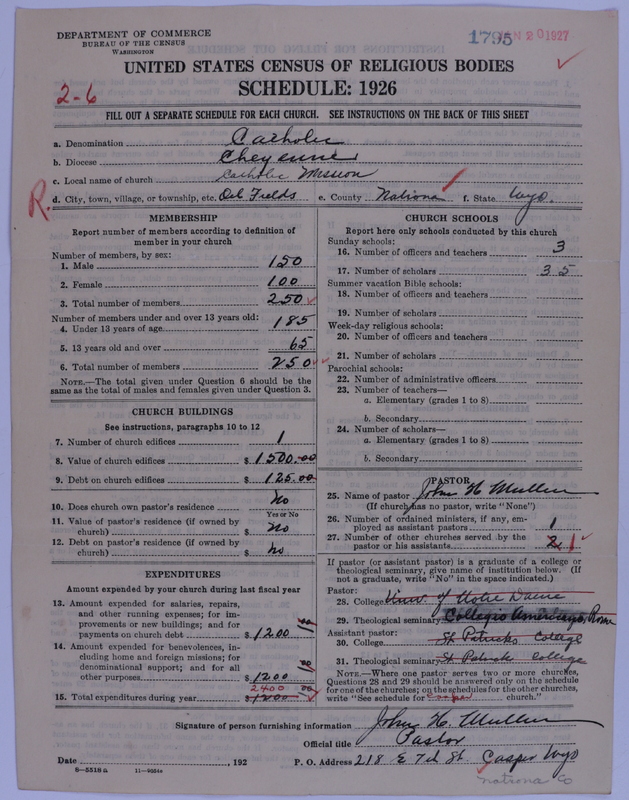 DEPARTMENT OF COMMERCE
BUREAU OF THE CENSUS
WASHINGTON
1795 JAN 20 1927
UNITED STATES CENSUS OF RELIGIOUS BODIES
SCHEDULE: 1926
2-6
FILL OUT A SEPARATE SCHEDULE FOR EACH CHURCH. SEE INSTRUCTIONS ON THE BACK OF THIS SHEET
a. Denomination Catholic
b. Diocese Cheyenne
c. Local name of church Catholic Mission
R. d. City, town, village, or township, etc. Oil Fields e. County Natrona f. State Wyo.
MEMBERSHIP
Report number of members according to definition of
member in your church
Number of members, by sex:
1. Male 150
2. Female 100
3. Total number of members 250
Number of members under and over 13 years old:
4. Under 13 years of age 185
5. 13 years old and over 65
6. Total number of members 250
NOTE.—The total given under Question 6 should be
same as the total of males and females given under Question 3.
CHURCH BUILDINGS
See instructions, paragraphs 10 to 12
7. Number of church edifices 1
8. Value of church edifices $ 1500.00
9. Debt on church edifices $ 125.00
10. Does church own pastor's residence? No
Yes or No
11. Value of pastor's residence (if owned by
church) $ No
12. Debt on pastor's residence (if owned by
church) $ no
EXPENDITURES
Amount expended by your church during last fiscal year
13. Amount expended for salaries, repairs,
and other running expenses; for im-
provements or new buildings; and for
payments on church debt $ 1200
14. Amount expended for benevolences, in-
cluding home and foreign missions; for
denominational support; and for all
other purposes $ 1200
2400
15. Total expenditures during year $ 1200
CHURCH SCHOOLS
Report here only schools conducted by this church
Sunday schools:
16. Number of officers and teachers 3
17. Number of scholars 35
Summer vacation Bible schools:
18. Number of officers and teachers
19. Number of scholars
Week-day religious schools:
20. Number of officers and teachers
21. Number of scholars
Parochial schools:
22. Number of administrative officers
23. Number of teachers—
a. Elementary (grades 1 to 8)
b. Secondary
24. Number of scholars—
a. Elementary (grades 1 to 8)
b. Secondary
PASTOR
25. Name of pastor John H. Mullen
(If church has no pastor, write "None")
26. Number of ordained ministers, if any, em-
ployed as assistant pastors 1
27. Number of other churches served by the
pastor or his assistants 2 1
If pastor (or assistant pastor) is a graduate of a college or
theological seminary, give name of institution below. (If
not a graduate, write "No" in the space indicated.)
Pastor:
28. College Univ. of Notre Dame
29. Theological seminary Collegio Americano, Rome
Assistant pastor:
30. College St Patricks College
31. Theological seminary St Patrick College
NOTE.—Where one pastor serves two or more churches,
Questions 28 and 29 should be answered only on the schedule
for one of the churches; on the schedules for the other churches,
write "See schedule for Casper church."
Signature of person furnishing information John H. Mullen
Official title Pastor
Date , 192 P. O. Address 218 E 7th St. Casper Wyo
8—5518a 11—9054
Natrona Co